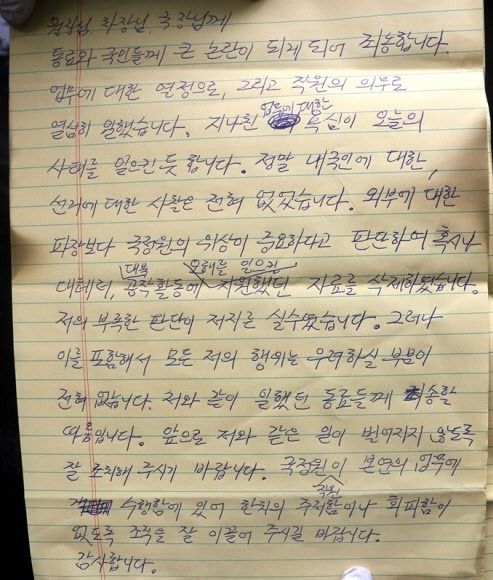 원장님, 차장님, 국장님께
동료와 국민들께 큰 논란이 되게 되어 죄송합니다.
업무에 대한 열정으로, 그리고 직원의 의무로
열심히 일했습니다. 지나친 업무에 대한 욕심이 오늘의
사태를 일으킨 듯 합니다. 정말 내국인에 대한,
선거에 대한 사찰은 전혀 없었습니다. 외부에 대한
파장보다 국정원의 위상이 중요하다고 판단하여 혹시나
대테러, 대북 공작활동에 오해를 일으킨 지원했던 자료를 삭제하였습니다.
저의 부족한 판단이 저지른 실수였습니다. 그러나
이를 포함해서 모든 저의 행위는 우려하실 부분이
전혀 없습니다. 저와 같이 일했던 동료들께 죄송할
따름입니다. 앞으로 저와 같은 일이 벌어지지 않도록
잘 조치해 주시기 바랍니다. 국정원이 본연의 업무에
수행함에 있어 한치의 주저함이나 회피함이
직원
없도록 조직을 잘 이끌어 주시길 바랍니다.
감사합니다.